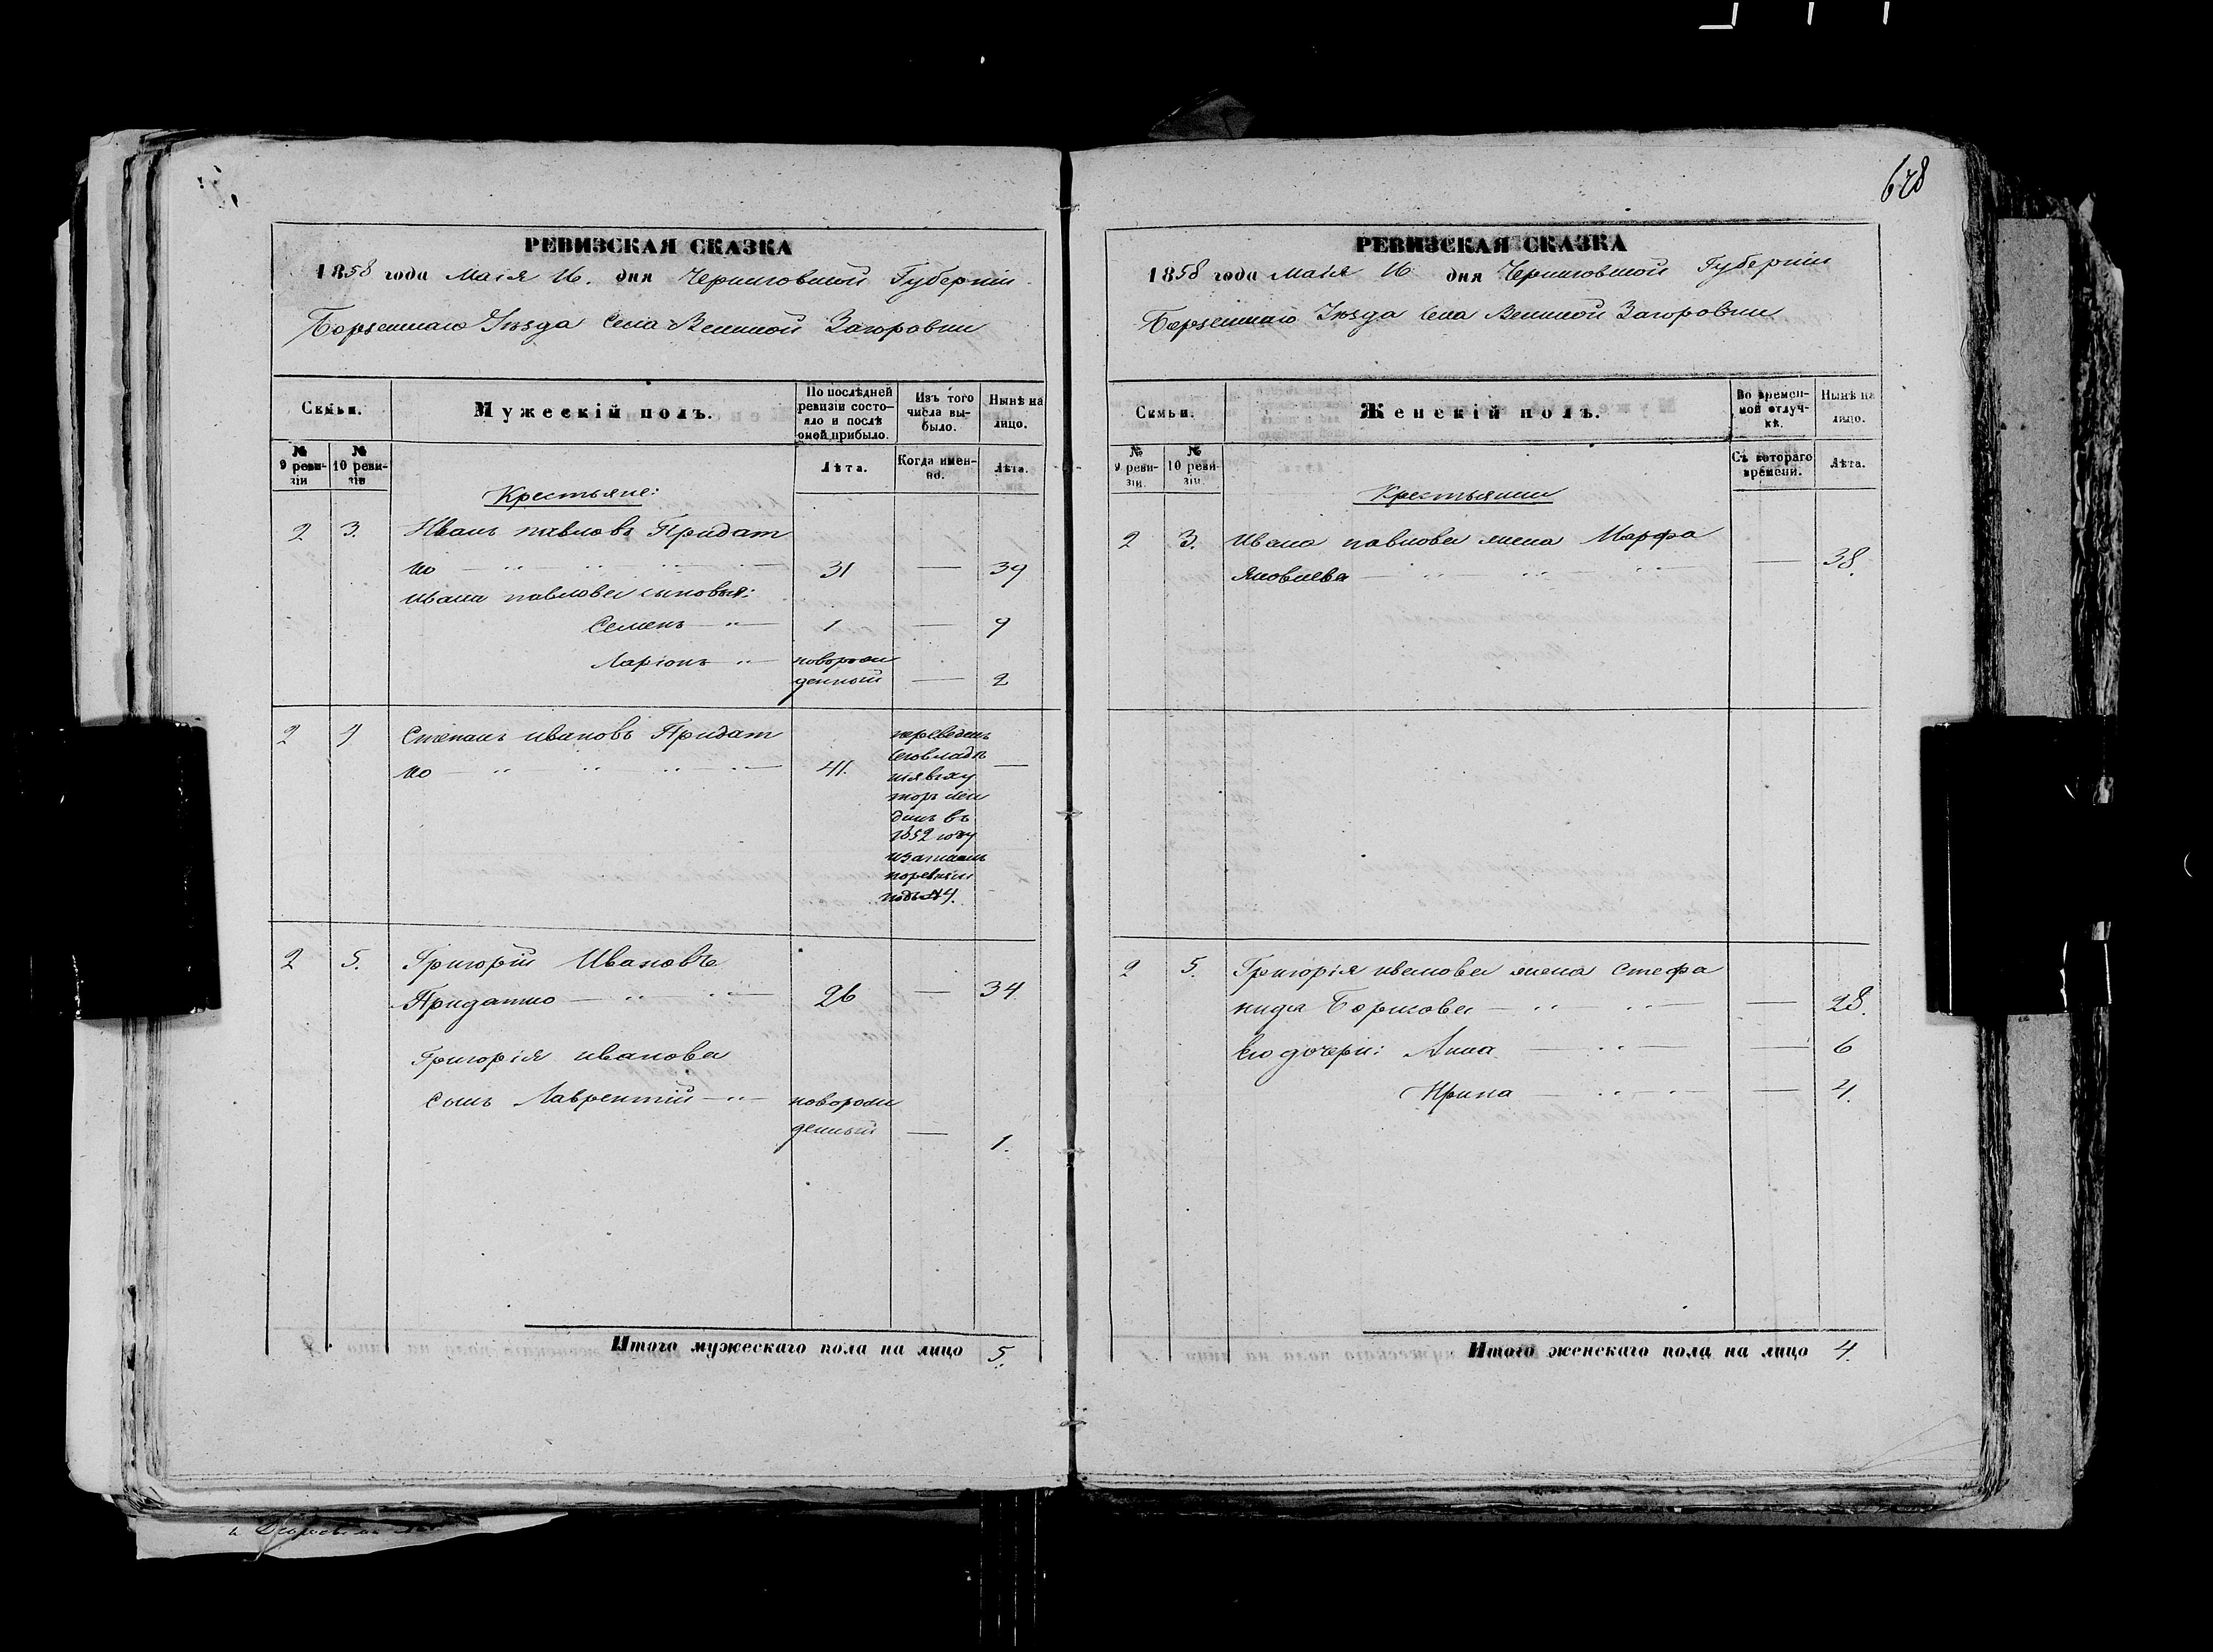 628
РЕВИЗСКАЯ СКАЗКА
1858 года Маія 16. дня Черниговской Губерніи
Борзенскаго Уѣзда Села Великой Загоровки
Семьи.
Мужескій полъ.
По послѣдней ревизіи состояло и послѣ оной прибыло.
Изъ того числа выбыло.
Нынѣ на лицо.
№ 9 ревизіи
№ 10 ревизіи
Лѣта.
Когда именно.
Лѣта.
Крестьяне:
2 3. Иванъ Павловъ Придат
ко 31 — 39
Ивана Павлова сыновья:
Семенъ 1 — 9
Ларіонъ новорож
денный — 2
2 4 Степанъ Ивановъ Придат
ко 41. —
переведенъ
въ
1852 году
по ревизіи
подъ №4.
2 5. Григорій Ивановъ
Придатко 26 — 34
Григорія Иванова
сынъ Лаврентій новорож
денный — 1.
Итого мужескаго пола на лицо 5.
РЕВИЗСКАЯ СКАЗКА
1858 года Маія 16 дня Черниговской Губерніи
Борзенскаго Уѣзда Села Великой Загоровки
Семьи.
Женскій полъ.
Во временной отлучкѣ.
Нынѣ на лицо.
№ 9 ревизіи.
№ 10 ревизіи.
Съ котораго времени.
Лѣта.
Крестьянки
2 3. Ивана Павлова жена Марфа
Яковлева — 38.
2 5. Григорія Иванова жена Стефа
нида Борисова — 28.
Его дочери: Анна — 6
Ирина — 4.
Итого женскаго пола на лицо 4.